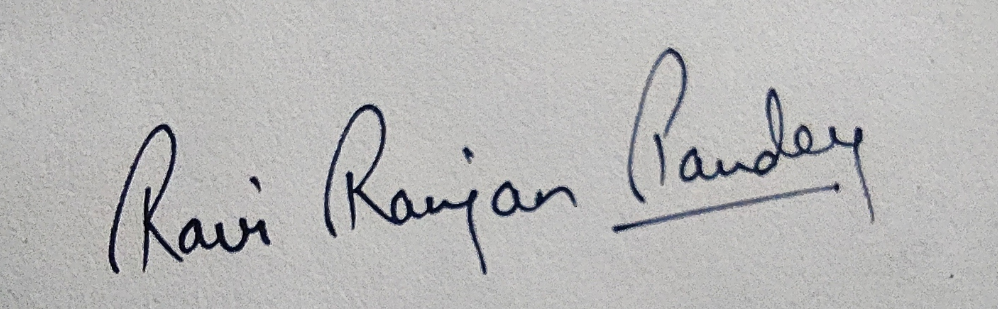 Ravi Ranjan Pandey